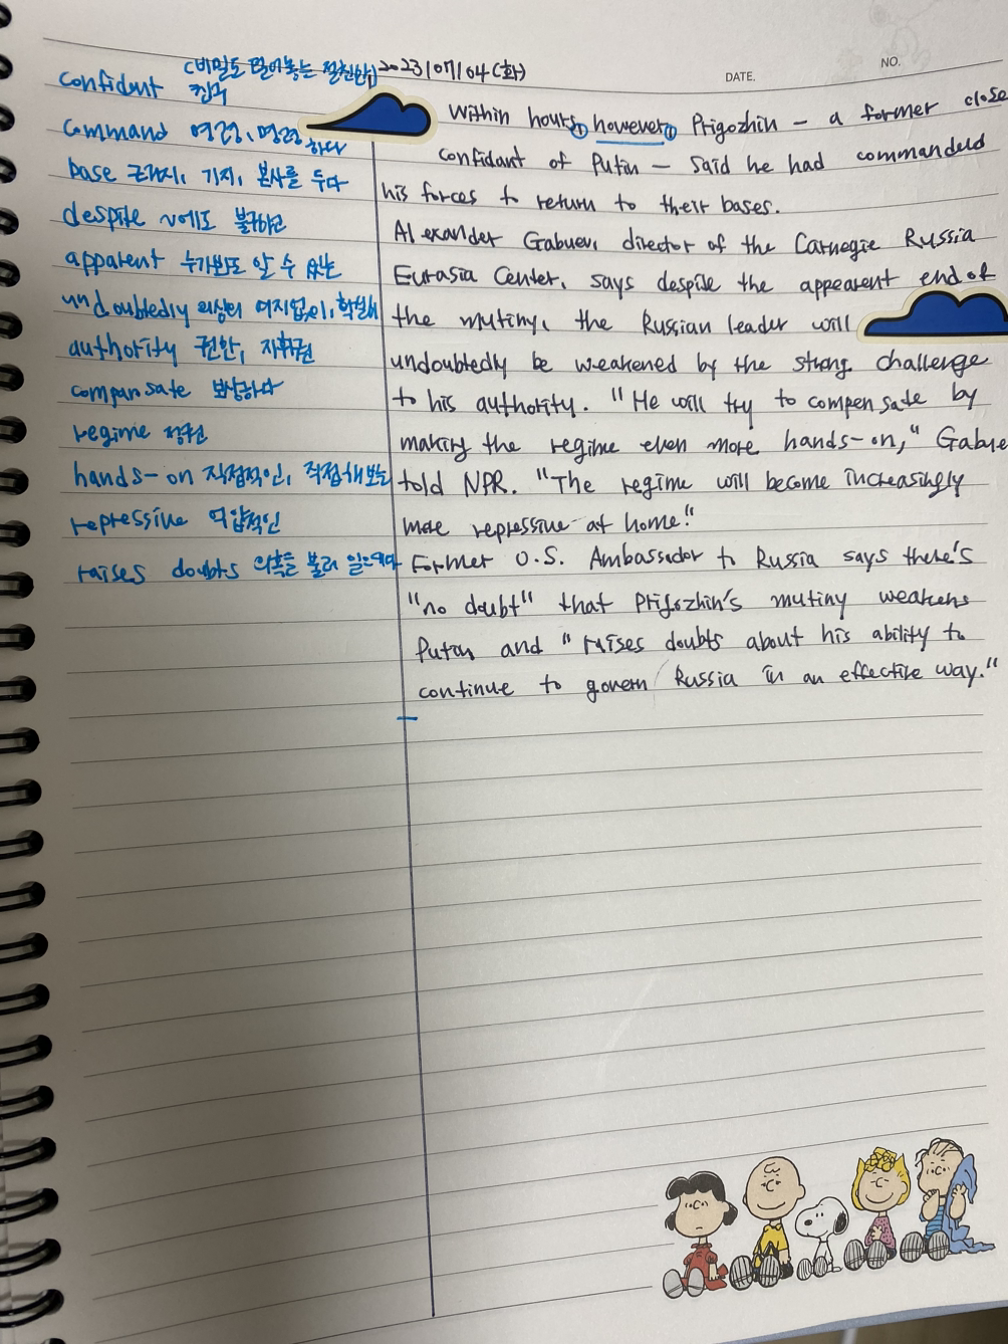 confident (비밀도 털어놓는 절친한)
친구
command 명령, 명령하다
base 근거지, 기지, 본사를 두다
despite ~에도 불구하고
apparent 누가봐도 알 수 있는
undoubtedly 의심의 여지없이, 확실히
authority 권한, 지휘권
compansate 보상하다
regime 정권
hands-on 직접적인, 직접해보는
repressive 억압적인
raises doubts 의혹을 불러 일으키다
2023/07/04(화)
DATE.
NO.
Within hours, however, Prigozhin – a former close
confidant of Putin – said he had commanded
his forces to return to their bases.
Alexander Gabuev, director of the Carnegie Russia
Eurasia Center, says despite the appearent end of
the mutiny, the Russian leader will
undoubtedly be weakened by the strong challenge
to his authority. "He will try to compensate by
making the regime even more hands-on," Gabue
told NPR. "The regime will become increasingly
more repressive at home."
Former U.S. Ambassador to Russia says there's
"no doubt" that Prigozhin's mutiny weakens
Putin and "raises doubts about his ability to
continue to govern Russia in an effective way."